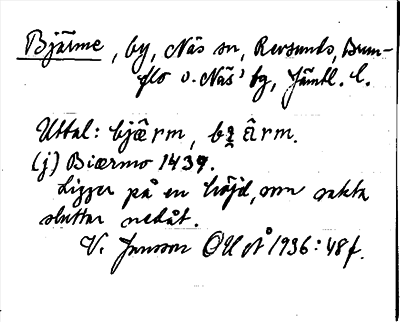 Bjärme, by, Näs sn, Revsunds, Brun-
flo o. Näs' tg, Jämtl. l.
Uttal: bjærm, bz ârm.
(j) Biærmo 1439.
Ligger på en höjd, som sakta
sluttar nedåt.
V. Jansson OUÅ 1936: 48 f.